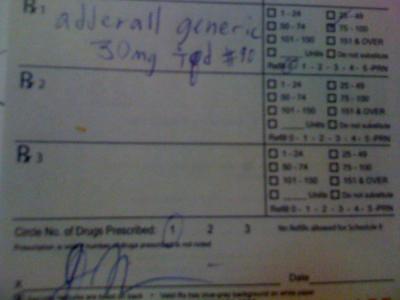 Rx 1
adderall generic
30mg Tqd #90
1 - 24 25 - 49
50 - 74 75 - 100
101 - 150 151 & OVER
Units Do not substitute
Refill 0 - 1 - 2 - 3 - 4 - 5 -PRN
Rx 2
1 - 24 25 - 49
50 - 74 75 - 100
101 - 150 151 & OVER
Units Do not substitute
Refill 0 - 1 - 2 - 3 - 4 - 5 -PRN
Rx 3
1 - 24 25 - 49
50 - 74 75 - 100
101 - 150 151 & OVER
Units Do not substitute
Refill 0 - 1 - 2 - 3 - 4 - 5 -PRN
Circle No. of Drugs Prescribed: 1 2 3 No Refills allowed for Schedule II
Prescription is void if number of drugs prescribed is not noted
X Date